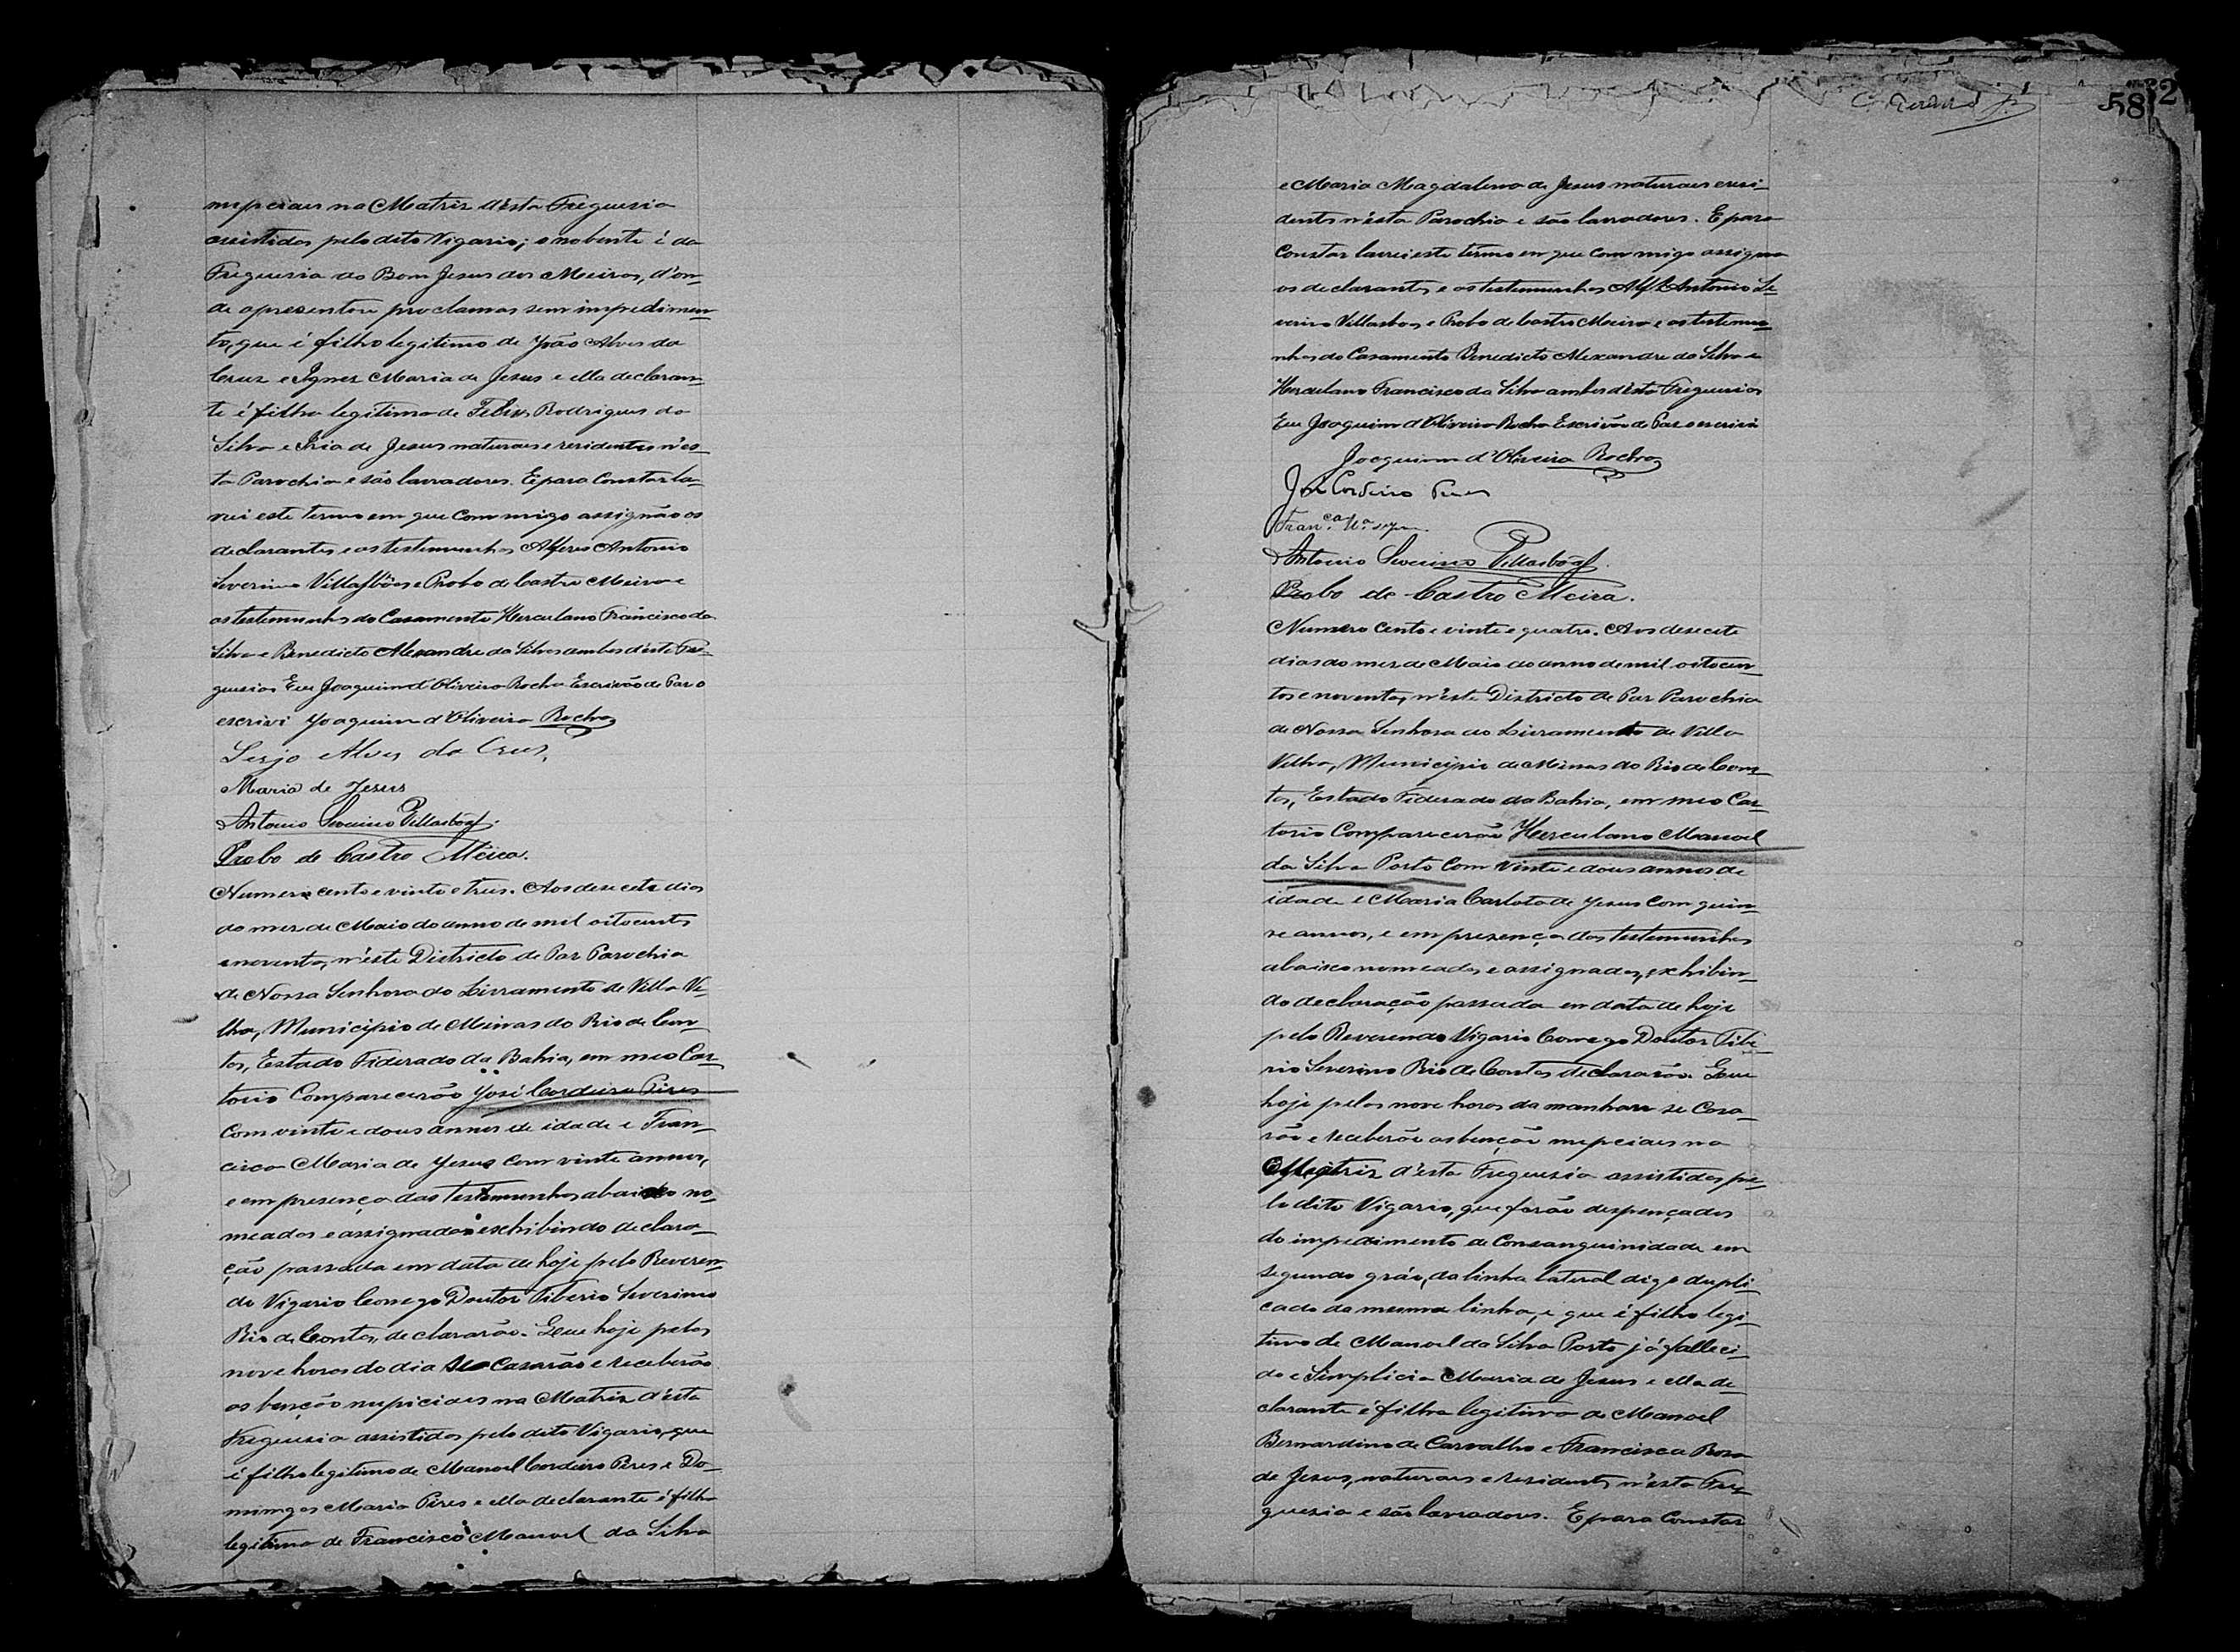 nupciaes na Matriz d'esta Freguezia
assistidos pelo dito Vigario; o nobente é da
Freguezia do Bom Jesus dos Meiras, d'on-
de apresentou proclamas sem impedimen-
to, que é filho legitimo de João Alves da
Cruz e Ignez Maria de Jesus e ella declaran-
te é filha legitima de Felix Rodrigues da
Silva e Iria de Jesus naturaes e residentes n'es-
ta Parochia e são lavradores. E para constar la-
vrei este termo em que commigo assignão os
declarantes e as testemunhas Alferes Antonio
Severino Villasbôas e Probo de Castro Meira e
as testemunhas do Casamento Herculano Francisco da
Silva e Benedicto Alexandre da Silva ambos d'esta Fre-
guezia. Eu Joaquim d'Oliveira Rocha Escrivão de Paz o
escrivi Joaquim d'Oliveira Rocha
Serjo Alves da Cruz,
Maria de Jesus
Antonio Severino Villasbôas.
Probo de Castro Meira.
Numero cento e vinte e tres. Aos desecete dias
do mez de Maio do anno de mil oitocentos
e noventa, n'este Districto de Paz Parochia
de Nossa Senhora do Livramento de Villa Ve-
lha, Municipio de Minas do Rio de Con-
tas, Estado Federado da Bahia, em meo Car-
torio Comparecerão José Cordeiro Pires
com vinte e dous annos de idade e Fran-
cisca Maria de Jesus com vinte annos,
e em presença das testemunhas abaixo no-
meados e assignados exhibindo declara-
ção passada em data de hoje pelo Reveren-
do Vigario Conego Doutor Tiberio Severino
Rio de Contas, declararão. Que hoje pelas
nove horas do dia se casarão e receberão
as benção nupiciaes na Matriz d'esta
Freguezia assistidos pelo dito Vigario, que
é filho legitimo de Manoel Cordeiro Pires e Do-
mingas Maria Pires e ella declarante é filha
legitima de Francisco Manoel da Silva
582
e Maria Magdalena de Jesus naturaes e resi-
dentes n'esta Parochia e são lavradores. E para
Constar lavrei este termo em que commigo assignão
os declarantes e as testemunhas Alf. Antonio Se-
verino Villasboas e Probo de Castro Meira e as testemu-
nhas do Casamento Benedicto Alexandre da Silva e
Herculano Francisco da Silva ambos d'esta Freguezia
Eu Joaquim d'Oliveira Rocha Escrivão de Paz o escrivi
Joaquim d'Oliveira Rocha
José Cordeiro Pires
Fran.ca M.a
Antonio Severino Villasbôas.
Probo de Castro Meira.
Numero Cento e vinte e quatro. Aos desecete
dias do mez de Maio do anno de mil oitocen-
tos e noventa, n'este Districto de Paz Parochia
de Nossa Senhora do Livramento de Villa
Velha, Municipio de Minas do Rio de Con-
tas, Estado Federado da Bahia, em meo Car-
torio Comparecerão Herculano Manoel
da Silva Porto com vinte e dous annos de
idade e Maria Carlota de Jesus com quin-
ze annos, e em presença das testemunhas
abaixo nomeados e assignados, exhibin-
do declaração passada em data de hoje
pelo Reverendo Vigario Conego Doutor Tibe-
rio Severino Rio de Contas declararão. Que
hoje pelas nove horas da manham se Casa-
rão e receberão as benção nupciaes na
Matriz d'esta Freguezia assistidos pe-
lo dito Vigario, que forão despençados
do impedimento de Consanguinidade em
segundo gráo, da linha lateral digo dupli-
cado da mesma linha, e que é filho legi-
timo de Manoel da Silva Porto já falleci-
do e Simplicia Maria de Jesus e ella de-
clarante é filha legitima de Manoel
Bernardino de Carvalho e Francisca Rosa
de Jesus, naturaes e residentes n'esta Fre-
guezia e são lavradores. E para Constar